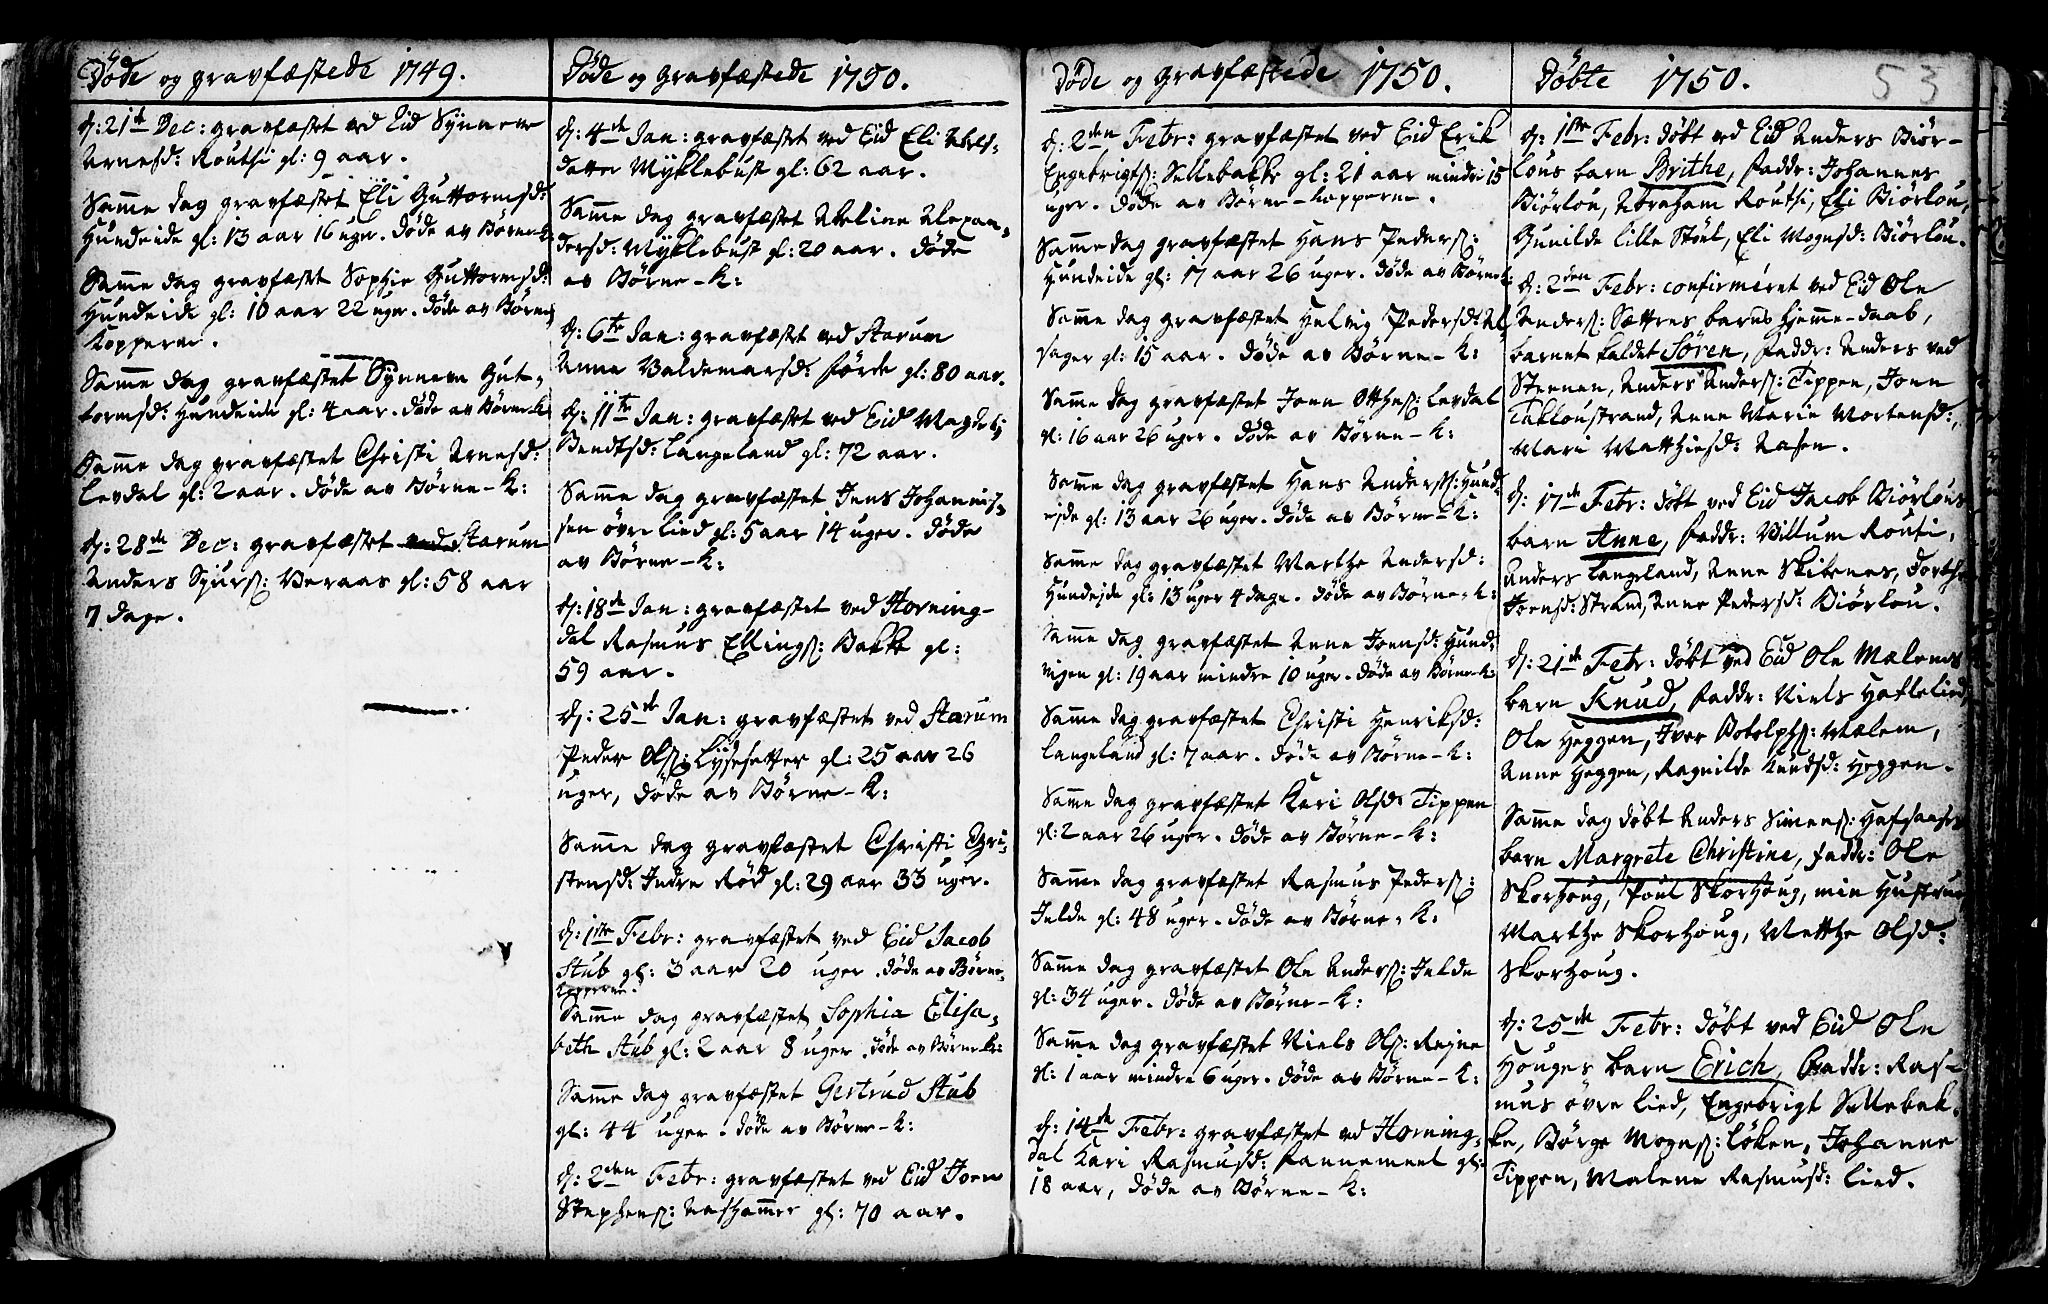 Døde og gravfæstede 1749.
d: 21de Dec: gravfæstet ved Eid Synneve
Arnesd: Routhi gl: 9 aar.
Samme dag gravfæstet Eli Guttormsd:
Hundeide gl: 13 aar 16 uger. døde av Børne-K:
Samme dag gravfæstet Sophie Guttormsd:
Hundeide gl: 10 aar 22 uger. døde av Børne
Kopperne.
Samme dag gravfæstet Synneve Gut-
tormsd: Hundeide gl: 4 aar. døde av Børne-K:
Samme dag gravfæstet Christi Arnesd:
Levdal gl: 2 aar. døde av Børne-K:
d: 28de Dec: gravfæstet ved Starum
Anders Sjurs: Veraas gl: 58 aar
7 dage.
Døde og gravfæstede 1750.
d: 4de Jan: gravfæstet ved Eid Eli
datter Myklebust gl: 62 aar.
Samme dag gravfæstet Abeline Alexan-
dersd: Myklebust gl: 20 aar. døde
av Børne-K:
d: 6te Jan: gravfæstet ved Starum
Anne Valdemarsd: Førde gl: 80 aar.
d: 11te Jan: gravfæstet ved Eid Magdeli
Bendtsd: Langeland gl: 72 aar.
Samme dag gravfæstet Jens Johannis-
sen øvre Lied gl: 5 aar 14 uger. døde
av Børne-K:
d: 18de Jan: gravfæstet ved Horning-
dal Rasmus Ellings: Bakke gl:
59 aar.
d: 25de Jan: gravfæstet ved Starum
Peder Ols: Lysesetter gl: 25 aar 26
uger, døde av Børne-K:
Samme dag gravfæstet Christi Chri-
stensd: Indre Rød gl: 29 aar 33 uger.
d: 1ste Febr: gravfæstet ved Eid Jacob
Stub gl: 3 aar 20 uger. døde av Børne-
kopperne.
Samme dag gravfæstet Sophia Elisa-
beth Stub gl: 2 aar 8 uger. døde av Børne-K:
Samme dag gravfæstet Gertrud Stub
gl: 44 uger. døde av Børne-K:
d: 2den Febr: gravfæstet ved Eid Joen
Stephens: Nashammer gl: 70 aar.
Døde og gravfæstede 1750.
d: 2den Febr: gravfæstet ved Eid Erik
Engebrigts: Sellebakke gl: 21 aar mindre 15
uger. døde av Børne-kopperne.
Samme dag gravfæstet Hans Peders:
Hundeide gl: 17 aar 26 uger. døde av Børne-K:
Samme dag gravfæstet Helvig Pedersd: Al
sager gl: 15 aar. døde av Børne-K:
Samme dag gravfæstet Joen Otthes: Levdal
gl: 16 aar 26 uger. døde av Børne-K:
Samme dag gravfæstet Hans Anders: Hund-
ejde gl: 13 aar 26 uger. døde av Børne-K:
Samme dag gravfæstet Marthe Andersd:
Hundejde gl: 13 uger 4 dage. døde av Børne-K:
Samme dag gravfæstet Anne Joensd: Hund-
vigen gl: 19 aar mindre 10 uger. døde av Børne-K:
Samme dag gravfæstet Christi Henriksd:
Langeland gl: 7 aar. døde av Børne-K:
Samme dag gravfæstet Kari Olsd: Tippen
gl: 2 aar 26 uger. døde av Børne-K:
Samme dag gravfæstet Rasmus Peders:
Jelde gl: 48 uger. døde av Børne-K:
Samme dag gravfæstet Ole Anders: Jelde
gl: 34 uger. døde av Børne-K:
Samme dag gravfæstet Niels Ols: Rejne
gl: 1 aar mindre 6 uger. døde av Børne-K:
d: 14de Febr: gravfæstet ved Horning-
dal Kari Rasmusd: Pannemeel gl:
18 aar, døde av Børne-K:
Døbte 1750. 53
d: 1ste Febr: døbt ved Eid Anders Biør-
lous barn Brithe, Faddr: Johannes
Biørlou, Abraham Routhi, Eli Biørlou,
Gunilde lille Støel, Eli Mognsd: Biørlou.
d: 2den Febr: confirmeret ved Eid Ole
Anders: Sættres barns hjemme-daab,
barnet kaldet Søren, Faddr: Anders ved
Steenen, Anders Anders: Tippen, Joen
Takloustrand, Anne Marie Mortensd:,
Mari Matthiesd: Aasen.
d: 17de Febr: døbt ved Eid Jacob Biørlous
barn Anne, Faddr: Villum Routi,
Anders Langeland, Anne Skibenes, Dorthe
Joensd: Strand, Anne Pedersd: Biørlou.
d: 21de Febr: døbt ved Eid Ole Mælems
barn Knud, Faddr: Niels Haftelied,
Ole Heggen, Iver Botolphs: Mælem,
Anne Heggen, Ragnilde Knudsd: Heggen.
Samme dag døbt Anders Simens: Hafsaases
barn Margrete Christine, Faddr: Ole
Skorhoug, Poul Skorhoug, min Hustrue
Marthe Skorhoug, Metthe Olsd:
Skorhoug.
d: 25de Febr: døbt ved Eid Ole
Houges barn Erich, Faddr: Ras-
mus øvre Lied, Engebrigt Sellebak-
ke, Børge Mogns: Løken, Johanne
Tippen, Malene Rasmusd: Lied.